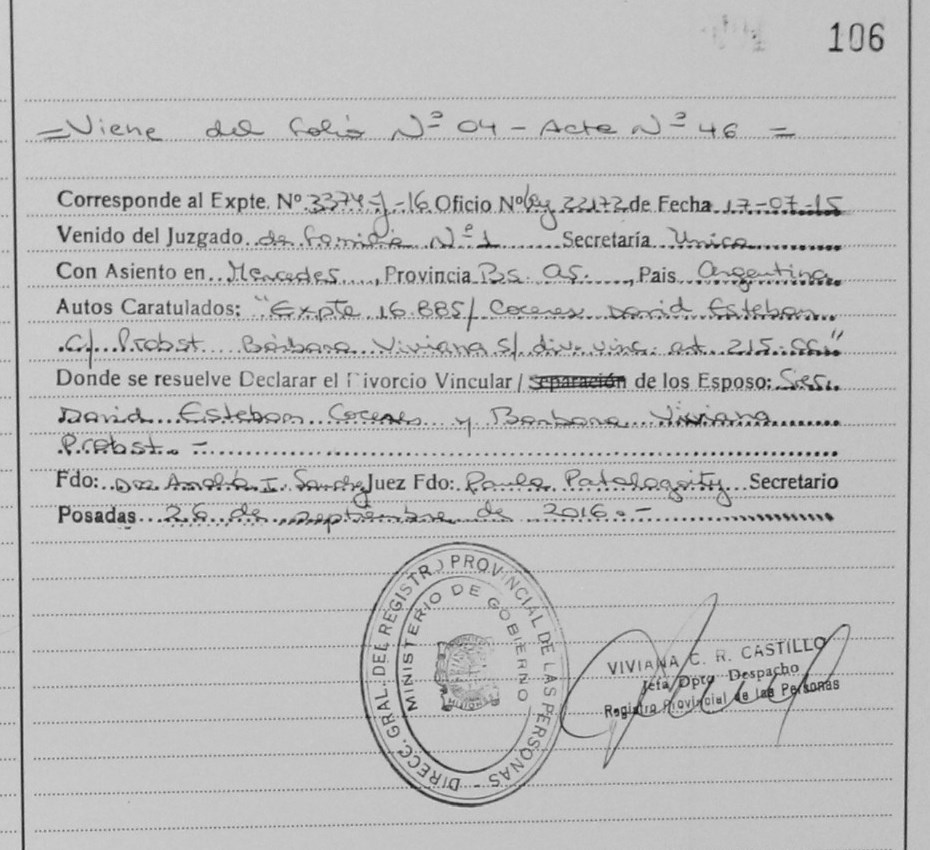 106
=Viene del folio Nº 04 - Acta Nº 46 =
Corresponde al Expte. Nº 3374-J-16 Oficio Nº Ley 22172 de Fecha 17-07-15
Venido del Juzgado de Familia Nº 1 Secretaría Unica
Con Asiento en Mercedes, Provincia Bs. As., Pais Argentina
Autos Caratulados: "Expte 16.885/ Coceres David Esteban
C/ Probst Bárbara Viviana S/ div. vinc. art. 215 CC."
Donde se resuelve Declarar el Divorcio Vincular / Separación de los Esposo: Sres.
David Esteban Coceres y Barbara Viviana
Probst. -
Fdo: Dra Amalia I. Juez Fdo: Paula Secretario
Posadas 26 de septiembre de 2016.-
DIRECC. GRAL. DEL REGISTRO PROVINCIAL DE LAS PERSONAS -
MINISTERIO DE GOBIERNO
MISIONES
VIVIANA C. R. CASTILLO
Jefa Dpto Despacho
Registro Provincial de las Personas